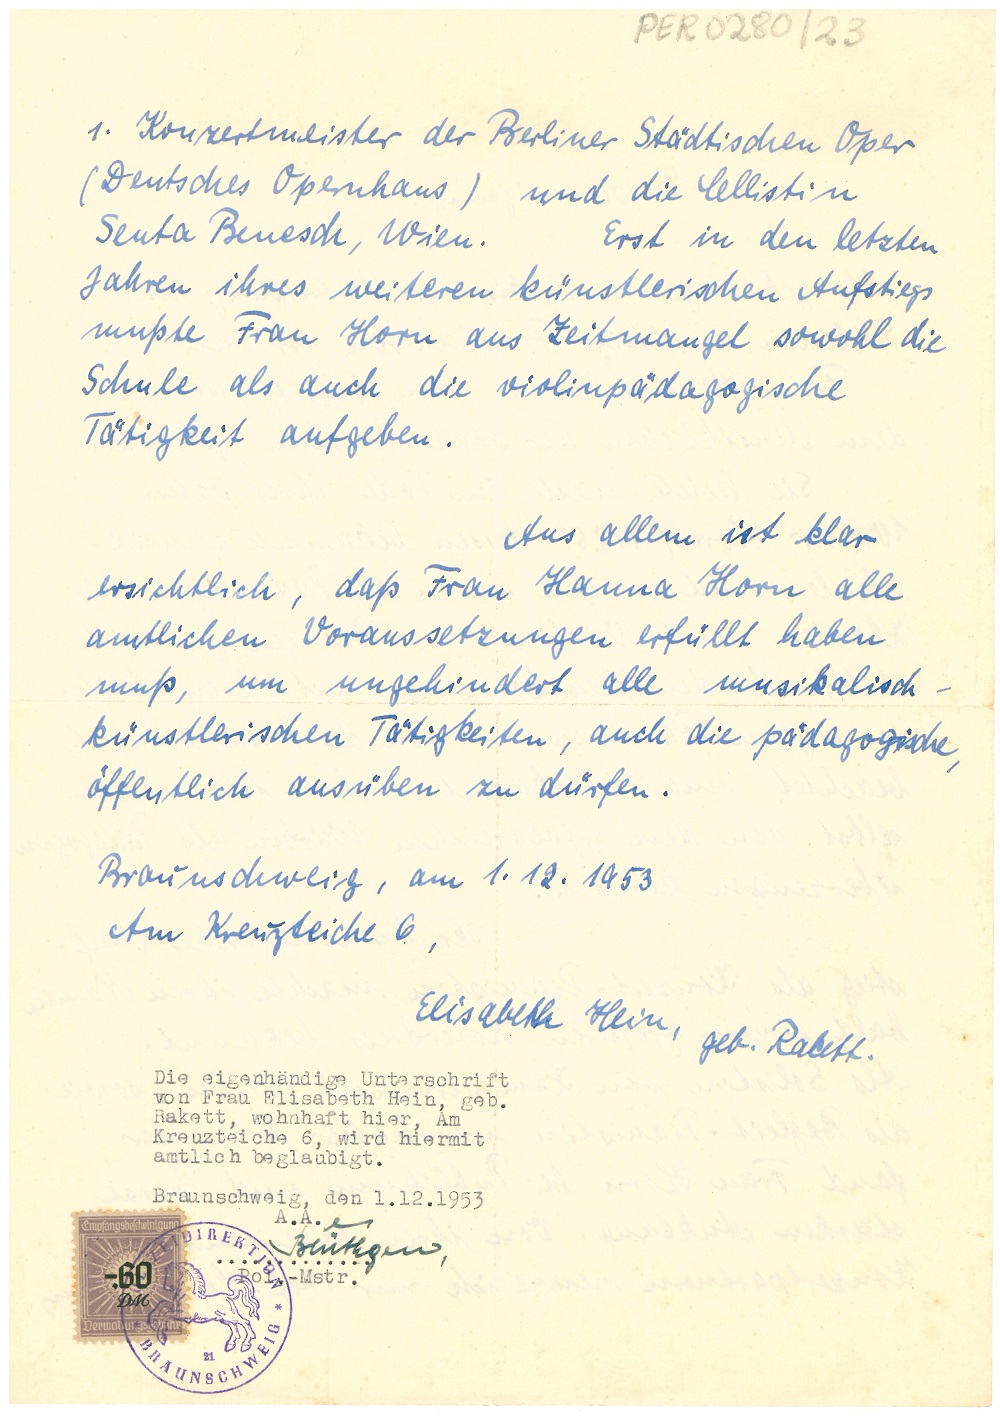 PER 0280/23
1. Konzertmeister der Berliner Städtischen Oper
(Deutsches Opernhaus) und die Cellistin
Senta Benesch, Wien. Erst in den letzten
Jahren ihres weiteren künstlerischen Aufstiegs
mußte Frau Horn aus Zeitmangel sowohl die
Schule als auch die violinpädagogische
Tätigkeit aufgeben.
Aus allem ist klar
ersichtlich, daß Frau Hanna Horn alle
amtlichen Voraussetzungen erfüllt haben
muß, um ungehindert alle musikalisch-
künstlerischen Tätigkeiten, auch die pädagogische,
öffentlich ausüben zu dürfen.
Braunschweig, am 1.12.1953
Am Kreuzteiche 6,
Elisabeth Hein, geb. Rakett.
Die eigenhändige Unterschrift
von Frau Elisabeth Hein, geb.
Rakett, wohnhaft hier, Am
Kreuzteiche 6, wird hiermit
amtlich beglaubigt.
Braunschweig, den 1.12.1953
A.A.
Pol.-Mstr.
Empfangsbescheinigung
-.60
DM
Verwaltungsgebühr
BRAUNSCHWEIG *
21